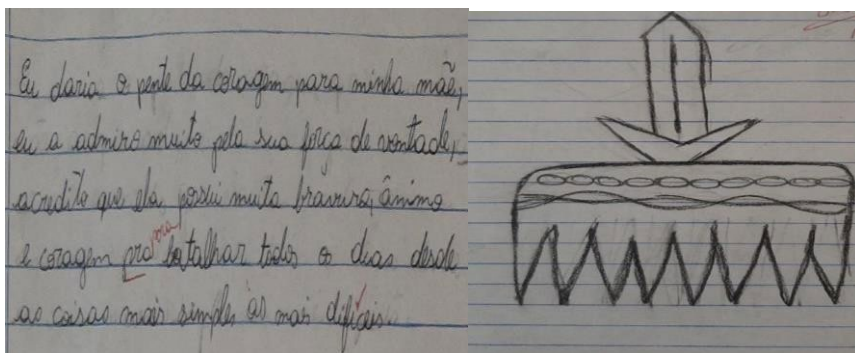 Eu daria o pente da coragem para minha mãe,
eu a admiro muito pela sua força de vontade,
acredito que ela possui muita bravura, ânimo
para
e coragem pra batalhar todos o dias desde
as coisas mais simples as mais difíceis.